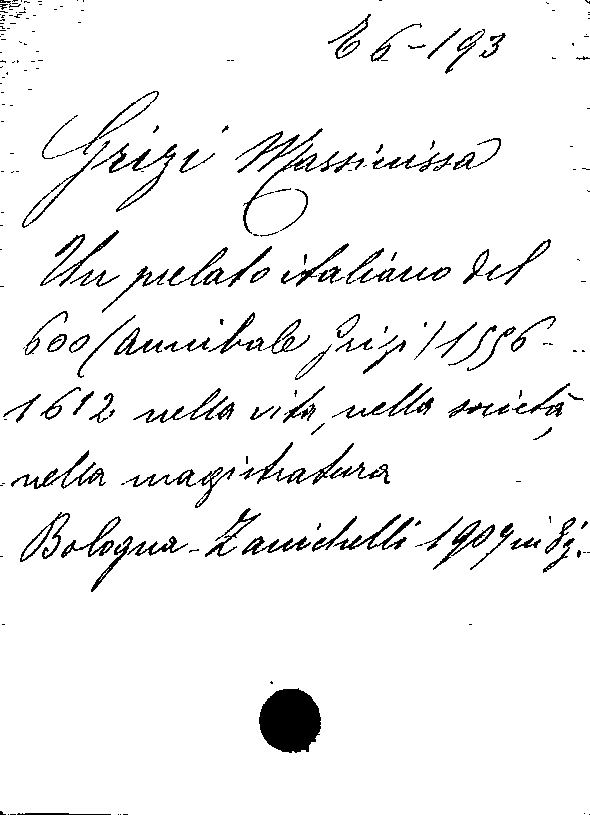 E 6-193
Grizi Massinissa
Un prelato italiano del
600 (Annibale Grizi) 1556-
1612 nella vita, nella società,
nella magistratura
Bologna-Zanichelli-1907 in 8º.